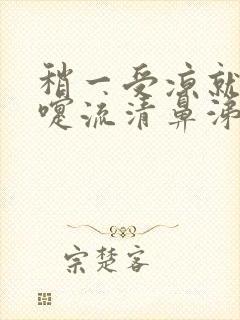 稍一受凉就
嚏流清鼻涕
宗楚客